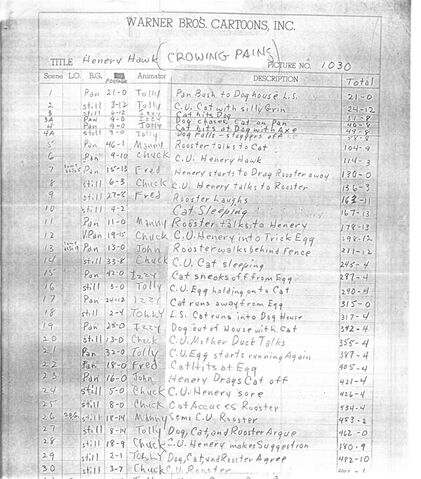 WARNER BROS. CARTOONS, INC.
TITLE Henery Hawk (CROWING PAINS) PICTURE NO. 1030
Scene L.O. B.G. Footage Animator DESCRIPTION Total
1 Pan 21-0 Tolly Pan Bush to Dog house L.S. 21-0
2 still 3-12 Tolly C.U. Cat with silly Grin 24-12
3 still Izzy Cat hits Dog
3A Pan Izzy Dog chases Cat on Pan
4 Pan Tolly Cat hits at Dog with Axe
4A still Tolly Dog Falls
5 Pan 46-1 Manny Rooster talks to Cat 104-9
6 Pan 9-10 Chuck C.U. Henery Hawk 114-3
7 Pan 15-13 Fred Henery starts to Drag Rooster away 130-0
8 still 6-3 Chuck C.U. Henery talks to Rooster 136-3
9 still 27-8 Fred Rooster Laughs 163-11
10 still Cat Sleeping 167-13
11 Pan 11-0 Manny Rooster talks to Henery 178-13
12 V.Pan 19-15 Chuck C.U. Henery into Trick Egg 198-12
13 Pan 13-0 John Rooster walks behind Fence 211-12
14 still 33-8 Chuck C.U. Cat sleeping 245-4
15 Pan 42-0 Izzy Cat sneaks off from Egg 287-4
16 still 3-0 Tolly C.U. Egg holding onto Cat 290-4
17 Pan 24-12 Izzy Cat runs away from Egg 315-0
18 still 2-4 Tolly L.S. Cat runs into Dog House 317-4
19 Pan 25-0 Izzy Dog out of House with Cat 342-4
20 still 13-0 Chuck C.U. Mother Duck Talks 355-4
21 Pan 32-0 Tolly C.U. Egg starts running Again 387-4
22 Pan 18-0 Fred Cat hits at Egg 405-4
23 Pan 16-0 John Henery Drags Cat off 421-4
24 still 5-0 Chuck C.U. Henery sore 426-4
25 still 8-0 Chuck Cat Accuses Rooster 434-4
26 still 18-14 Manny Semi C.U. Rooster 453-2
27 still 8-14 Tolly Dog, Cat, and Rooster Argue 462-0
28 still 18-9 Chuck C.U. Henery makes Suggestion 480-9
29 still 2-1 Tolly Dog, Cat, and Rooster Agree 482-10
30 still 3-7 Chuck C.U. Rooster